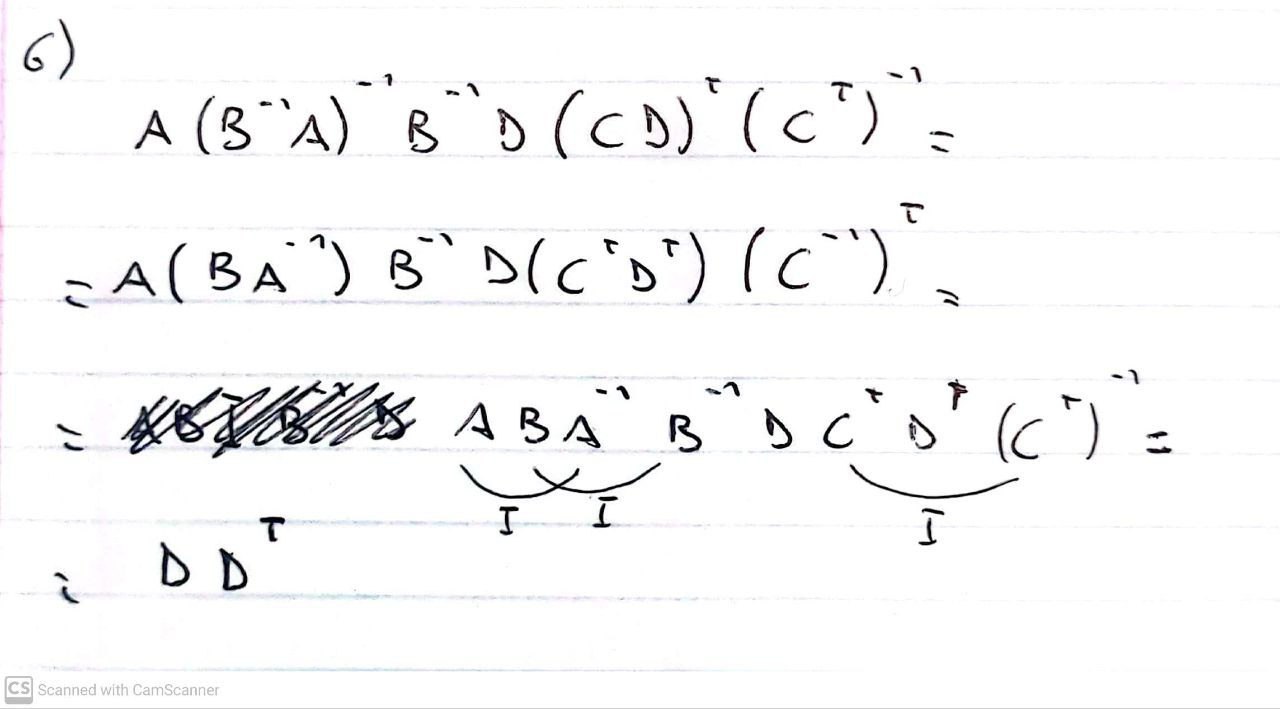 6)
A (B⁻¹A)⁻¹ B⁻¹ D (CD)ᵀ (Cᵀ)⁻¹ =
= A (BA⁻¹) B⁻¹ D (CᵀDᵀ) (C⁻¹)ᵀ =
= A B A⁻¹ B⁻¹ D Cᵀ Dᵀ (Cᵀ)⁻¹ =
I I I
= D Dᵀ
CS Scanned with CamScanner